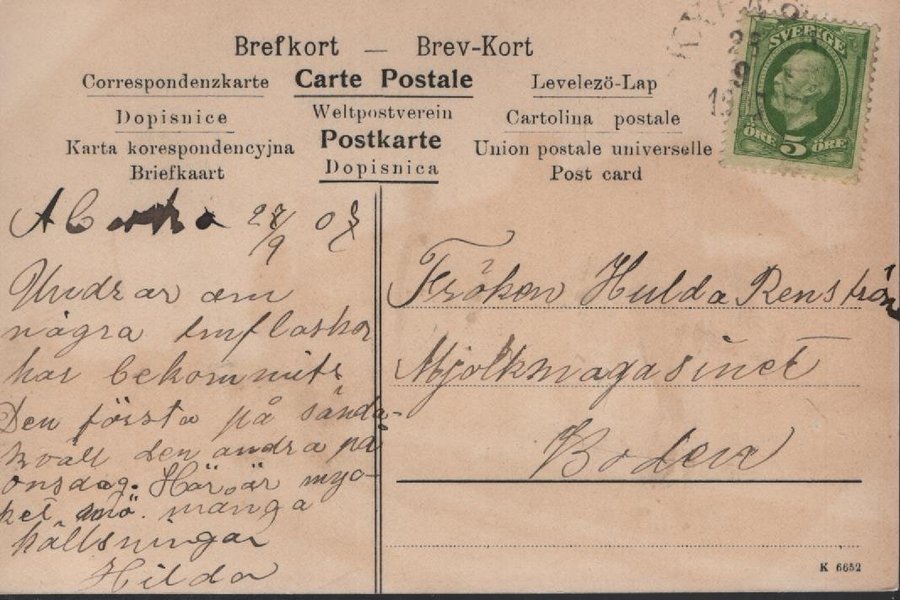 Brefkort — Brev-Kort
Correspondenzkarte Carte Postale Levelezö-Lap
Dopisnice Weltpostverein Cartolina postale
Karta korespondencyjna Postkarte Union postale universelle
Briefkaart Dopisnica Post card
SVERIGE
ÖRE 5 ÖRE
9
27/9 07
Undrar om
några
har bekommits
Den första på sönda-
kväll den andra på
onsdag. Här är myc-
ket snö. många
hällsningar
Hilda
Fröken Hulda Renström
Mjölkmagasinet
Boden
K 6652